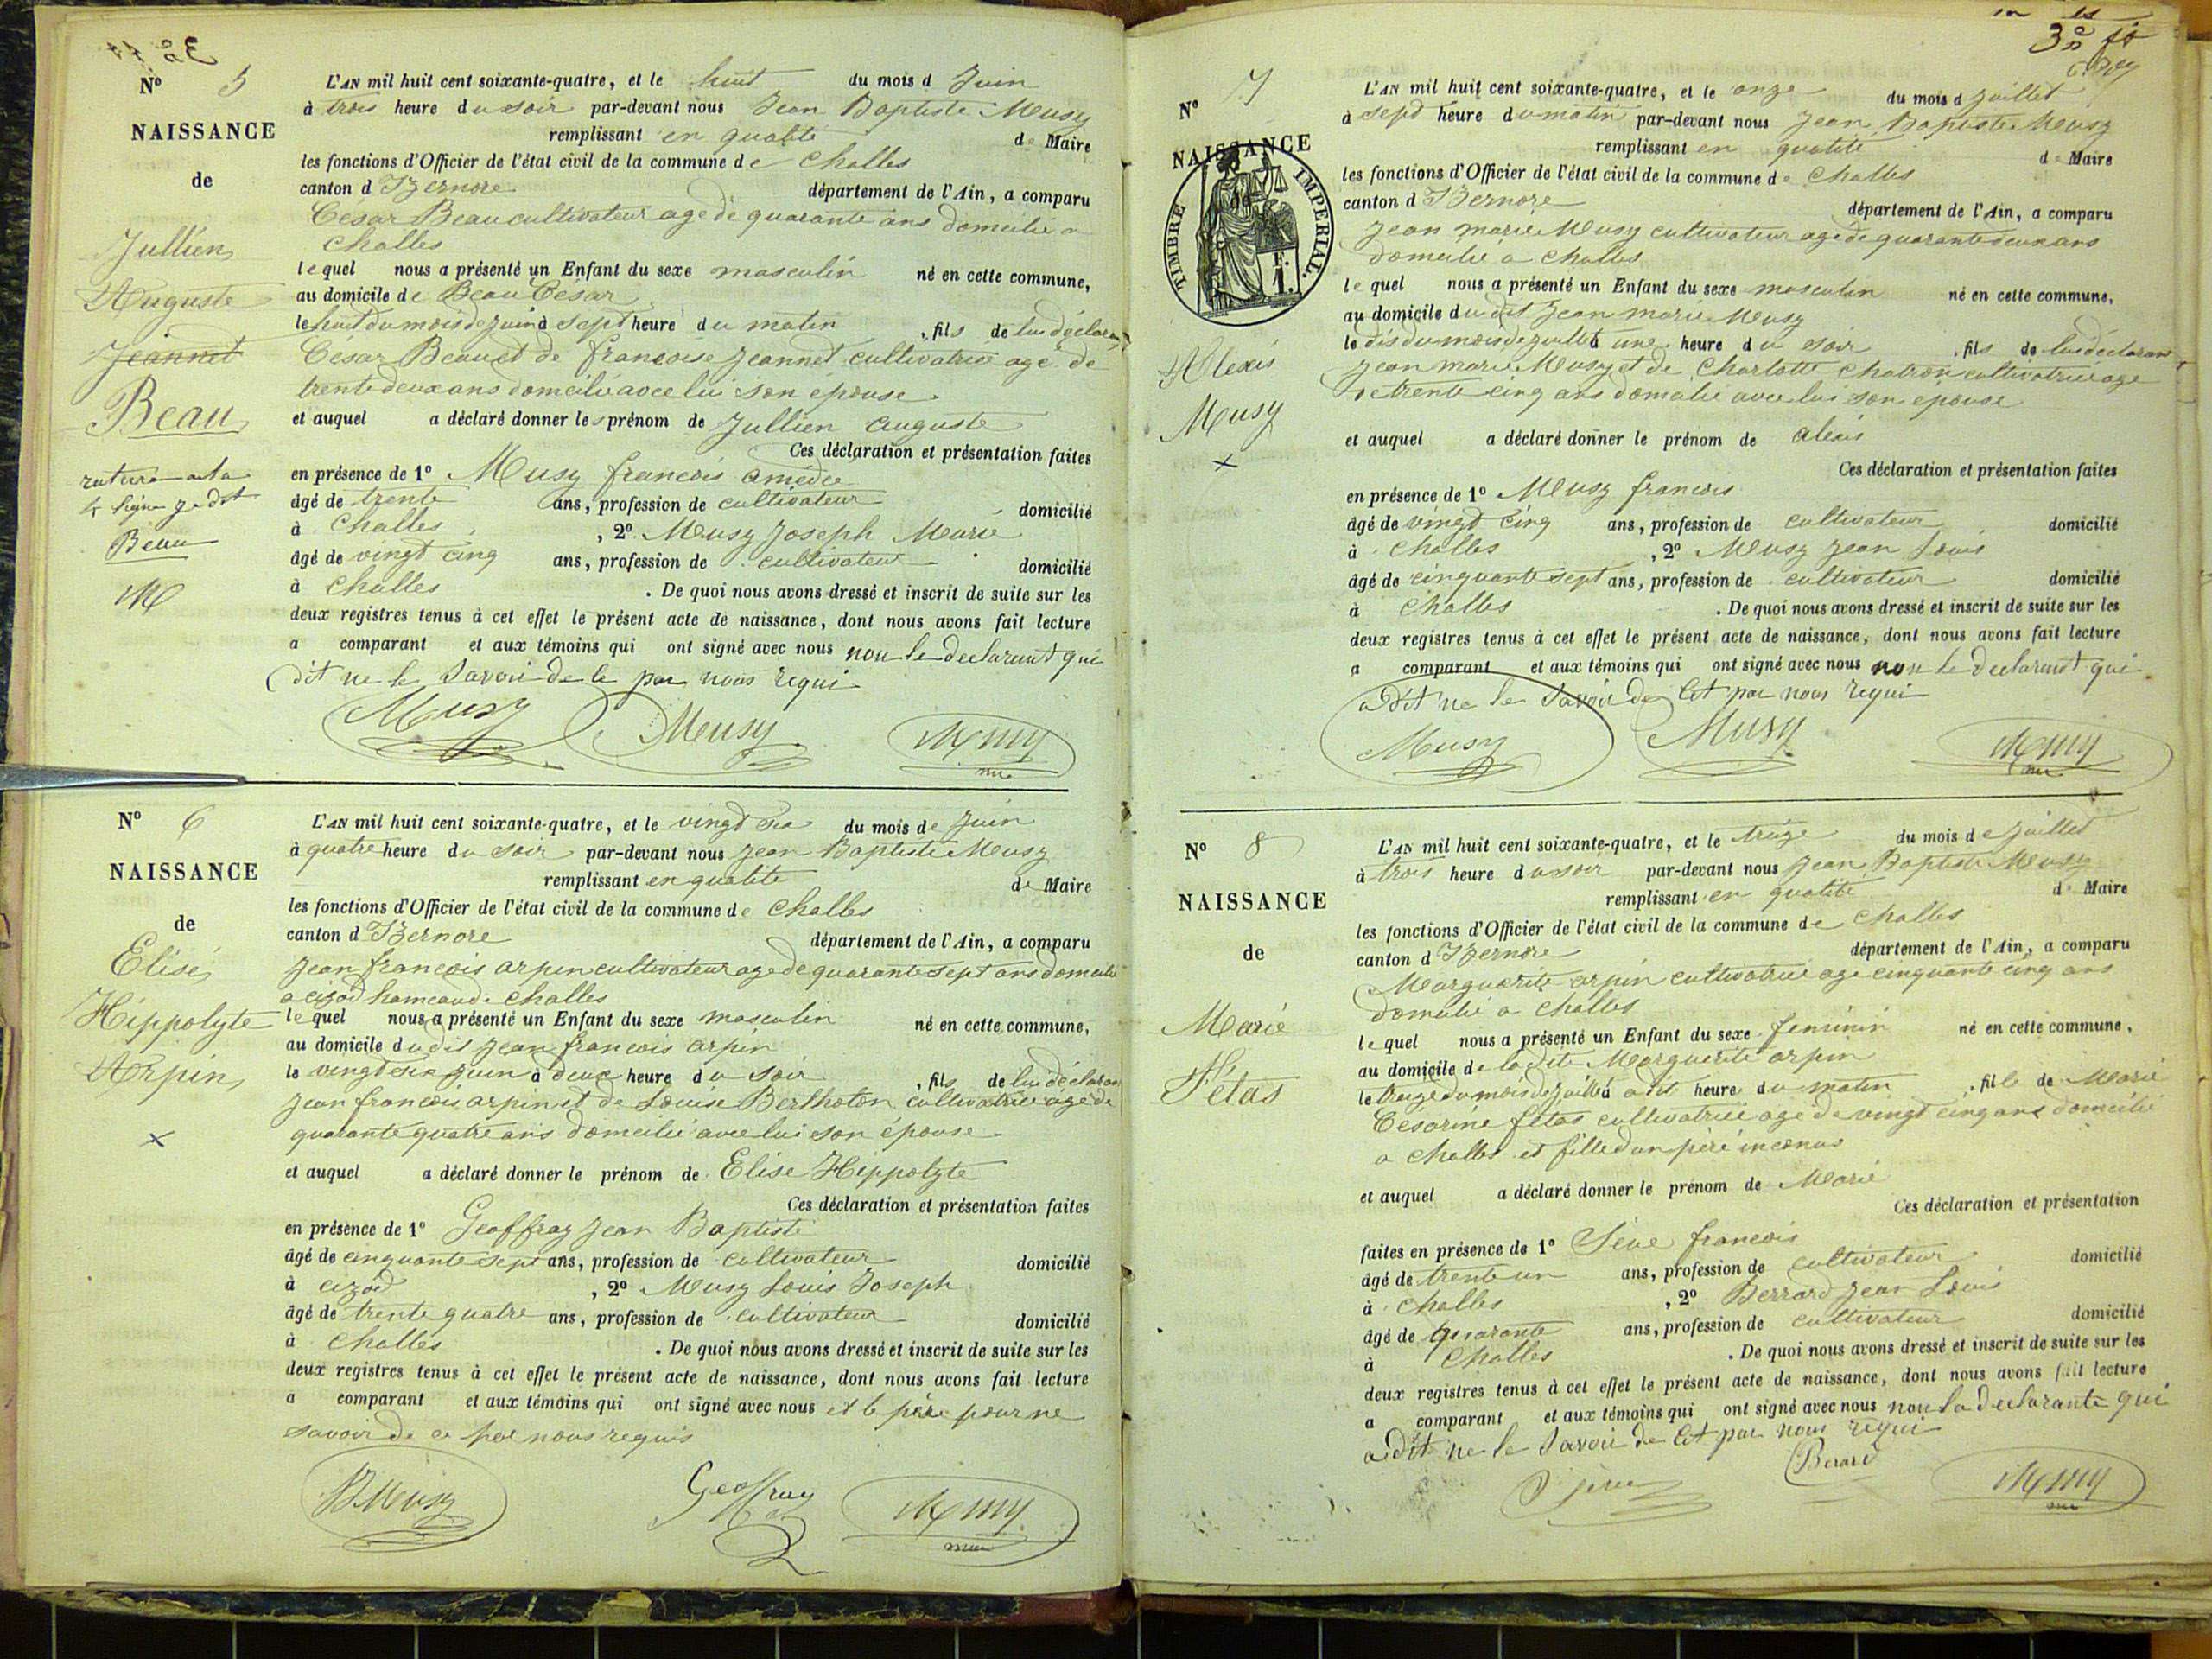 Nº 5
NAISSANCE
de
Jullien
Auguste
Jeannet
Beau
rature a la
4 ligne
Beau
M
L'AN mil huit cent soixante-quatre, et le huit du mois d Juin
à trois heure du soir par-devant nous Jean Baptiste Musy
remplissant en qualité de Maire
les fonctions d'Officier de l'état civil de la commune de Challes
canton d'Izernore département de l'Ain, a comparu
César Beau cultivateur age de quarante ans domicilié a
Challes
lequel nous a présenté un Enfant du sexe masculin né en cette commune,
au domicile de Beau César
le huit du mois de juin à sept heure du matin , fils de lui déclarant
César Beau et de françoise Jeannet cultivatrice age de
trente deux ans domicilié avec lui son épouse
et auquel a déclaré donner les prénom de Jullien auguste
Ces déclaration et présentation faites
en présence de 1º Musy francois amédée
âgé de trente ans, profession de cultivateur domicilié
à Challes , 2º Musy Joseph Marie
âgé de vingt cinq ans, profession de cultivateur domicilié
à Challes . De quoi nous avons dressé et inscrit de suite sur les
deux registres tenus à cet effet le présent acte de naissance, dont nous avons fait lecture
a comparant et aux témoins qui ont signé avec nous non le declarant qui
dit ne le savoir de le par nous requi
Musy Musy Musy
Nº 6
NAISSANCE
de
Elisé
Hippolyte
Arpin
x
L'AN mil huit cent soixante-quatre, et le vingt six du mois de Juin
à quatre heure du soir par-devant nous Jean Baptiste Musy
remplissant en qualité de Maire
les fonctions d'Officier de l'état civil de la commune de Challes
canton d'Izernore département de l'Ain, a comparu
Jean françois arpin cultivateur age de quarante sept ans domicilié
a cizod hameau de Challes
lequel nous a présenté un Enfant du sexe masculin né en cette commune,
au domicile dudit Jean françois arpin
le vingt six juin à deux heure du soir , fils de lui déclarant
Jean françois arpin et de Louise Bertholon cultivatrice age de
quarante quatre ans domicilié avec lui son épouse
et auquel a déclaré donner le prénom de Elise Hippolyte
Ces déclaration et présentation faites
en présence de 1º Geoffray Jean Baptiste
âgé de cinquante sept ans, profession de cultivateur domicilié
à cizod , 2º Musy Louis Joseph
âgé de trente quatre ans, profession de cultivateur domicilié
à Challes . De quoi nous avons dressé et inscrit de suite sur les
deux registres tenus à cet effet le présent acte de naissance, dont nous avons fait lecture
a comparant et aux témoins qui ont signé avec nous et le père pour ne
savoir de ce par nous requis
Musy Geoffray Musy
Nº 7
NAISSANCE
de
TIMBRE IMPERIAL.
F.
1.
Alexis
Musy
x
L'AN mil huit cent soixante-quatre, et le onze du mois d Juillet
à sept heure du matin par-devant nous Jean Baptiste Musy
remplissant en qualité de Maire
les fonctions d'Officier de l'état civil de la commune de Challes
canton d'Izernore département de l'Ain, a comparu
Jean marie Musy cultivateur age de quarante deux ans
domicilié a Challes
lequel nous a présenté un Enfant du sexe masculin né en cette commune,
au domicile dudit Jean marie Musy
le dis du mois de juillet à une heure du soir , fils de lui déclarant
Jean marie Musy et de Charlotte Chatron cultivatrice age
de trente cinq ans domicilié avec lui son épouse
et auquel a déclaré donner le prénom de alexis
Ces déclaration et présentation faites
en présence de 1º Musy francois
âgé de vingt cinq ans, profession de cultivateur domicilié
à Challes , 2º Musy Jean Louis
âgé de cinquante sept ans, profession de cultivateur domicilié
à Challes . De quoi nous avons dressé et inscrit de suite sur les
deux registres tenus à cet effet le présent acte de naissance, dont nous avons fait lecture
a comparant et aux témoins qui ont signé avec nous non le declarant qui
a dit ne le savoir de cet par nous requi
Musy Musy Musy
Nº 8
NAISSANCE
de
Marie
Fétas
L'AN mil huit cent soixante-quatre, et le treize du mois de Juillet
à trois heure du soir par-devant nous Jean Baptiste Musy
remplissant en qualité de Maire
les fonctions d'Officier de l'état civil de la commune de Challes
canton d'Izernore département de l'Ain, a comparu
Marguerite arpin cultivatrice age cinquante cinq ans
domicilié a Challes
lequel nous a présenté un Enfant du sexe feminin né en cette commune,
au domicile de ladite Marguerite arpin
le treize du mois de juillet à heure du matin , fille de Marie
Césarine fétas cultivatrice age de vingt cinq ans domicilié
a Challes et fille d'un père inconus
et auquel a déclaré donner le prénom de Marie
Ces déclaration et présentation
faites en présence de 1º Sève francois
âgé de trente un ans, profession de cultivateur domicilié
à Challes , 2º Berrard Jean Louis
âgé de quarante ans, profession de cultivateur domicilié
à Challes . De quoi nous avons dressé et inscrit de suite sur les
deux registres tenus à cet effet le présent acte de naissance, dont nous avons fait lecture
a comparant et aux témoins qui ont signé avec nous non la declarante qui
a dit ne le savoir de cet par nous requi
Berard Musy